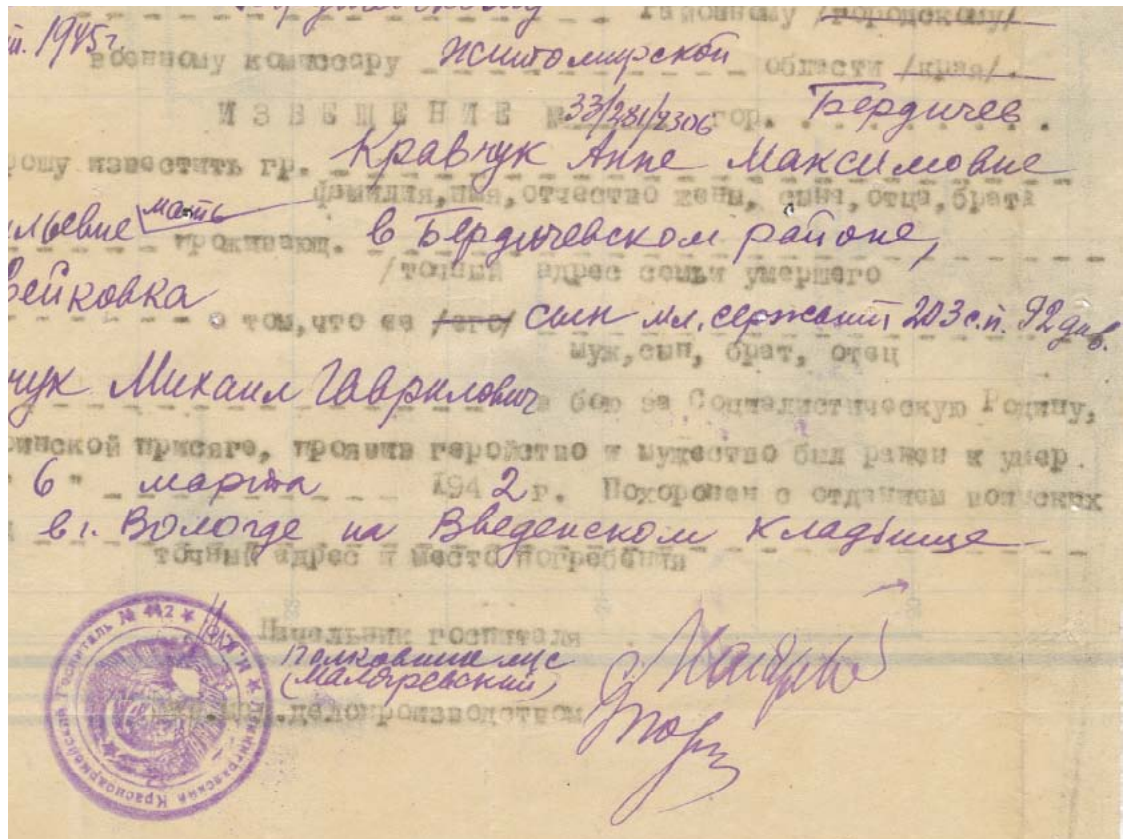 районному /городскому/
1945г.
военному комиссару Житомирской области /края/.
ИЗВЕЩЕНИЕ № 33/281/2306 гор. Бердичев
рошу известить гр. Кравчук Анне Максимовне
фамилия, имя, отчество жены, сына, отца, брата
льевне мать
проживающ. в Бердичевском районе,
/точный адрес семьи умершего
вейковка о том, что ее /его/ сын мл. сержант 203 с.п. 92 див.
муж, сын, брат, отец
чук Михаил Гаврилович в бою за Социалистическую Родину,
оинской присяге, проявив геройство и мужество был ранен и умер
6 " марта 1942 г. Похоронен с отданием воинских
в г. Вологде на Введенском кладбище
точный адрес и место погребения
Начальник госпиталя
Полковник м/с
(Маляревский)
делопроизводством
Ленинградский Красноармейский Госпиталь № 442 * Н.К.О. *